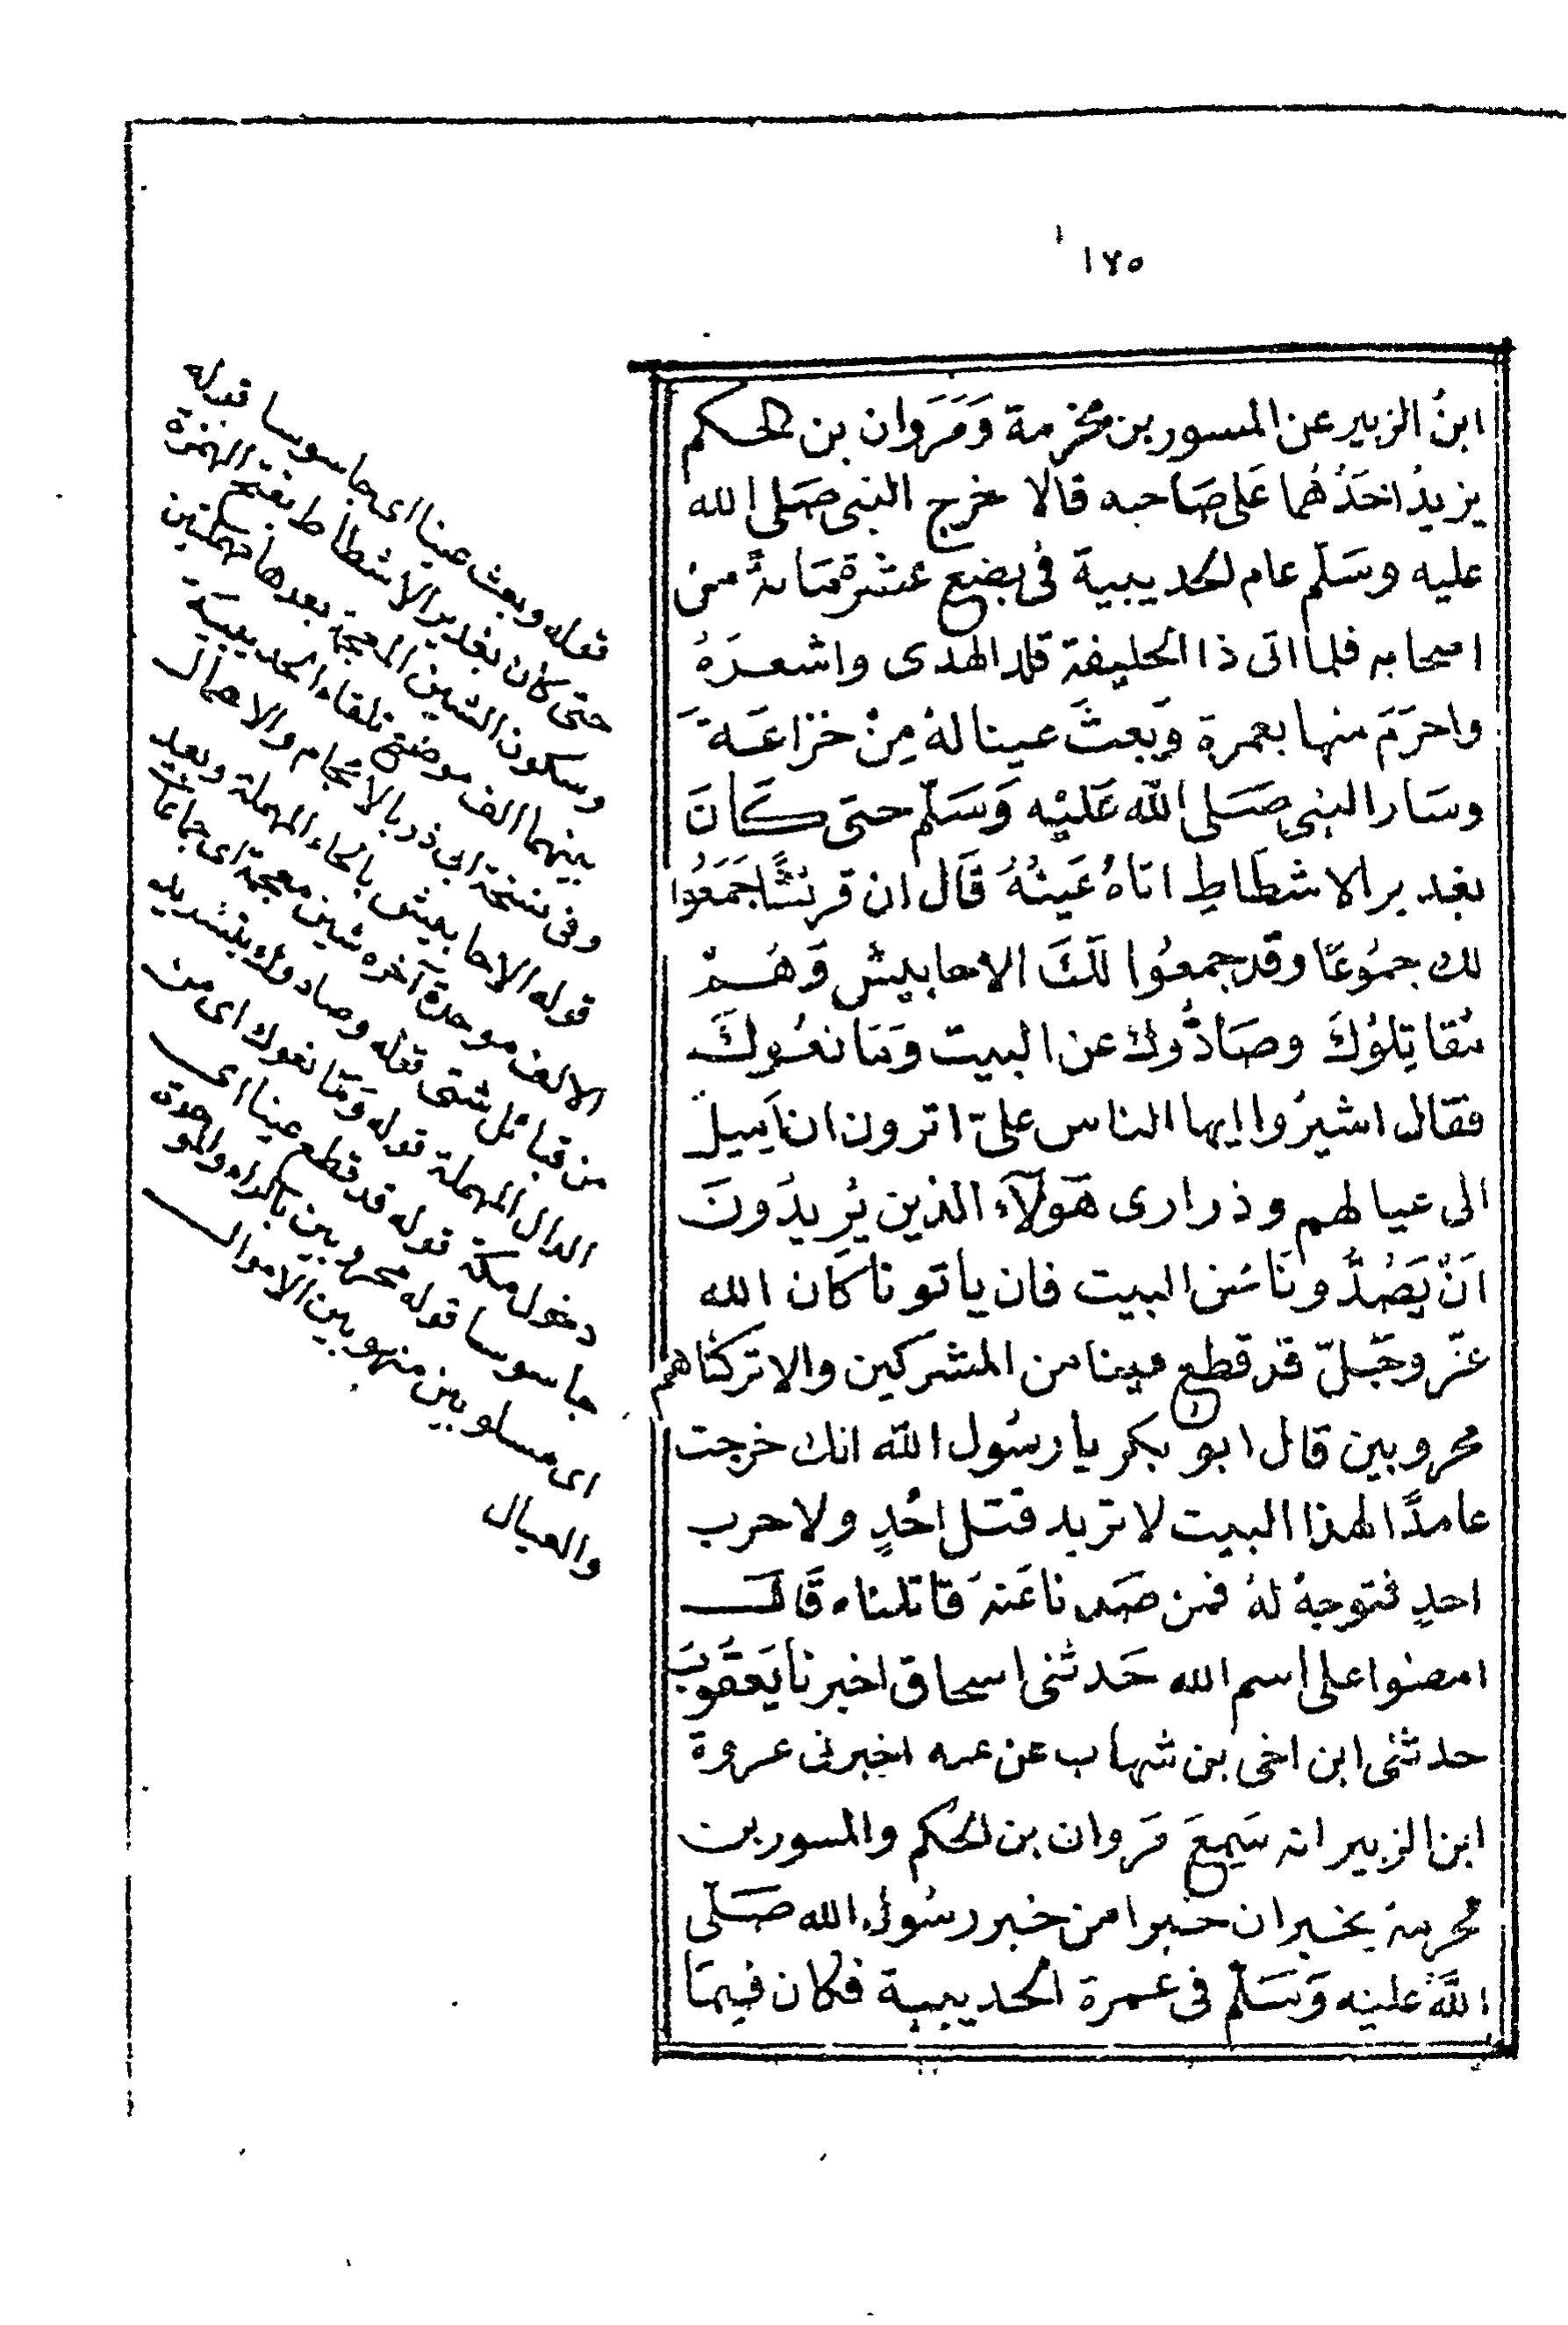 ١٢٥
ابنُ الزبير عن المسور بن مخرمة وَمَرَوان بن الحكم
يزيدُ احَدُهُما عَلى صَاحبه قالا خرج النبى صَلى الله
عليه وسَلّم عام الحديبية فى بضع عشرة مَائةً من
اصحابه فلما اتى ذا الحليفة قلد الهدى واشعرَهُ
واحرَمَ منها بعمرة وَبعثَ عينا لهُ مِنْ خزاعَة
وسَار النبى صَلى اللّه عَليْه وَسَلّم حتى كَانَ
بغدير الاشطَاطِ اتاهُ عَينُهُ قَال ان قريشًا جَمَعُوا
لك جموُعًا وقد جمعُوا لَكَ الاحابيش وَهُمْ
مُقاتِلوُكَ وصَادُّوك عن البيت وَمَانعُوكَ
فقال اشيرُوا ايها الناس علىّ اترون ان اَميل
الى عيالهم وذرارى هَؤلآء الذين يُريدُونَ
اَنْ يَصُدُّونَا عن البيت فان ياتونا كَان الله
عزّ وجَلّ قد قطع عينا من المشركين والا تركناهم
محروبين قال ابو بكر يا رسُول اللّه انك خرجت
عامدًا لهذا البيت لا تريد قتل احَدٍ ولا حرب
احدٍ فتوجهْ لهُ فمن صَدنا عَنهُ قاتلناه قَال
امضوا على اسم الله حَدثنى اسحاق اخبرنا يَعقوُبَ
حدثنى ابن اخى بن شهاب عن عمه اخبرنى عروة
ابن الزبير انه سَمِعَ مَروان بن الحكم والمسور بن
مخرمة يخبران خبرا من خبر رسُول الله صَلّى
اللَّه علينه وَسَلّم فى عمرة الحديبية فكان فيمَا
قوله وبعث عينا اى جاسوسا قوله
حتى كان بغدير الاشطاط بفتح الهمزة
وسكون الشين المعجمة بعدها مهملتين
بينهما الف موضع تلقاء الحديبية
وفى نسخة ابى ذر بالاعجام والاهمال
قوله الاحابيش بالحاء المهملة وبعد
الالف موحدة آخره شين معجمة اى جماعات
من قبائل شتى قوله وصادوك بتشديد
الدال المهملة قوله وَمَانعوك اى من
دخول مكة قوله قد قطع عينا اى
جاسوسا قوله محروبين بالراء والموحدة
اى مسلوبين منهوبين الاموال
والعيال